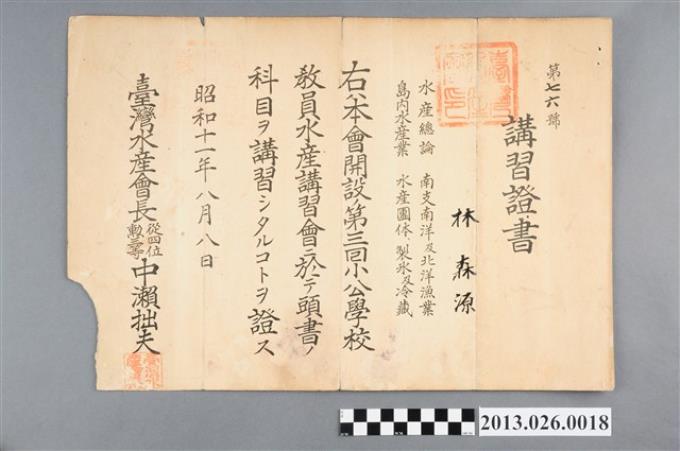 第七六號
講習證書
林森源
水産總論 南支南洋及北洋漁業
島內水産業 水産團体、製氷及冷藏
右ハ本會開設ノ第三回小公學校
教員水産講習會ニ於テ頭書ノ
科目ヲ講習シタルコトヲ證ス
昭和十一年八月八日
臺灣水産會長 從四位 勲三等 中瀨拙夫
2013.026.0018